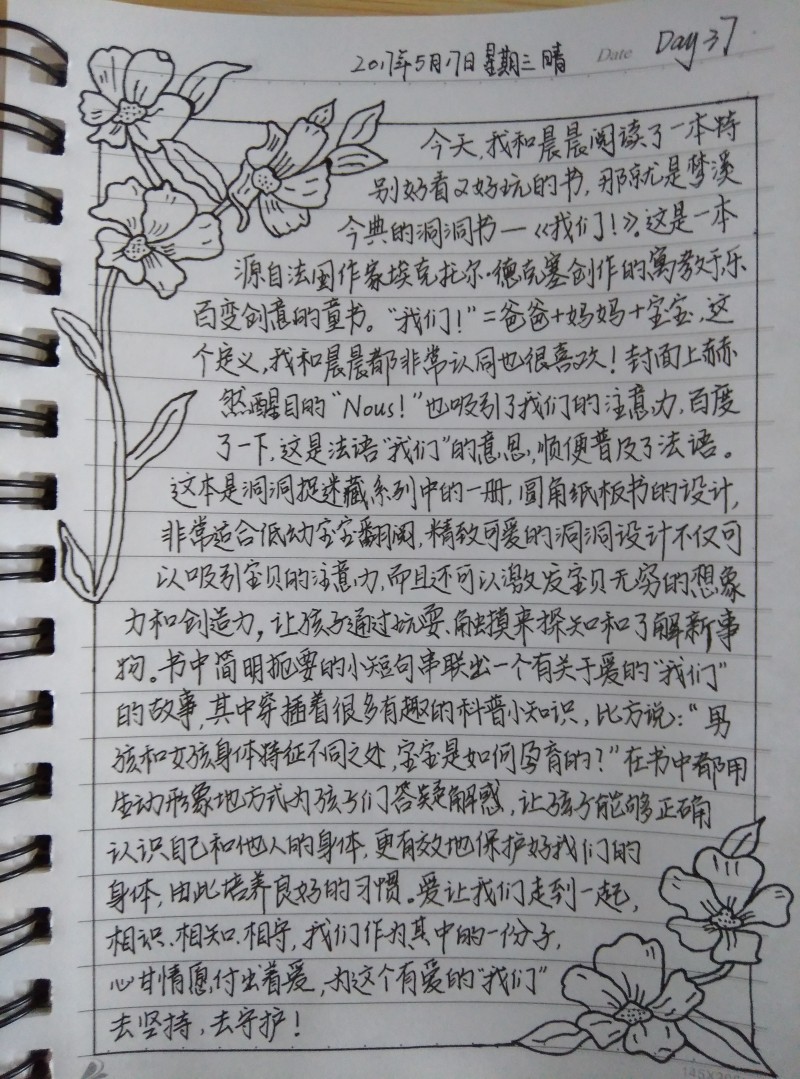 2017年5月17日星期三 晴 Date Day 37
今天,我和晨晨阅读了一本特
别好看又好玩的书,那就是梦溪
今典的洞洞书—《我们!》。这是一本
源自法国作家埃克托尔·德克塞创作的寓教于乐
百变创意的童书。“我们!”=爸爸+妈妈+宝宝,这
个定义,我和晨晨都非常认同也很喜欢!封面上赫
然醒目的“Nous!”也吸引了我们的注意力,百度
了一下,这是法语“我们”的意思,顺便普及了法语。
这本是洞洞捉迷藏系列中的一册,圆角纸板书的设计,
非常适合低幼宝宝翻阅,精致可爱的洞洞设计不仅可
以吸引宝贝的注意力,而且还可以激发宝贝无穷的想象
力和创造力,让孩子通过玩耍、触摸来探知和了解新事
物。书中简明扼要的小短句串联出一个有关于爱的“我们”
的故事,其中穿插着很多有趣的科普小知识,比方说:“男
孩和女孩身体特征不同之处,宝宝是如何孕育的?”在书中都用
生动形象地方式为孩子们答疑解惑,让孩子能够正确
认识自己和他人的身体,更有效地保护好我们的
身体,由此培养良好的习惯。爱让我们走到一起,
相识、相知、相守,我们作为其中的一份子,
心甘情愿付出着爱,为这个有爱的“我们”
去坚持,去守护!